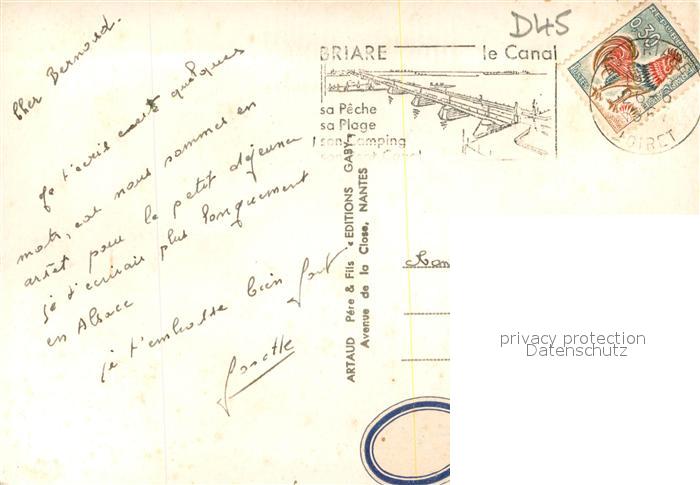 Cher Bernard.
Je t'écris quelques
mots, car nous sommes en
arrêt pour le petit déjeuner
je t'écrirai plus longuement
en Alsace
je t'embrasse bien fort
D45
BRIARE le Canal
sa Pêche
sa Plage
son Camping
0,30
LOIRET
ARTAUD Père & Fils « EDITIONS GABY »
Avenue de la Close, NANTES
privacy protection
Datenschutz